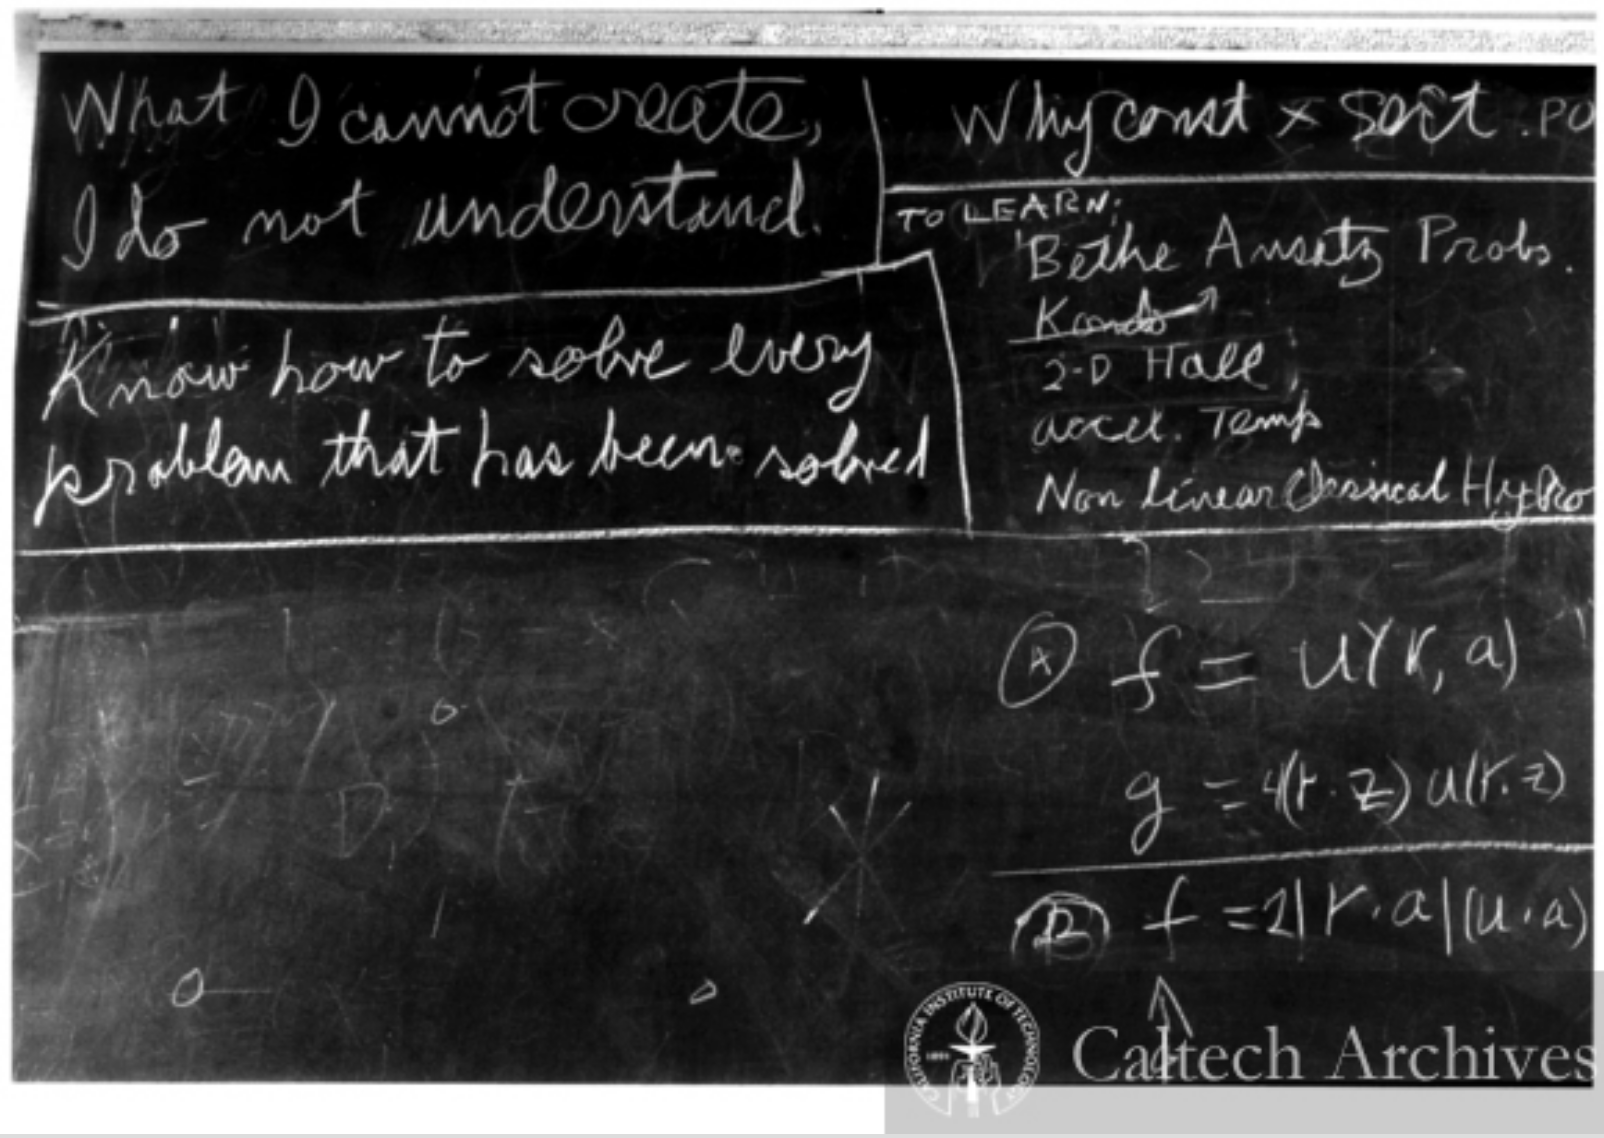 What I cannot create,
I do not understand.
Know how to solve every
problem that has been solved
Why const × sect. PO
TO LEARN:
Bethe Ansatz Probs.
Kondo
2-D Hall
accel. Temp
Non linear Classical Hydro
A f = u(r, a)
g = 4(r·z) u(r·z)
f = 2|r·a|(u·a)
CALIFORNIA INSTITUTE OF TECHNOLOGY
1891
Caltech Archives